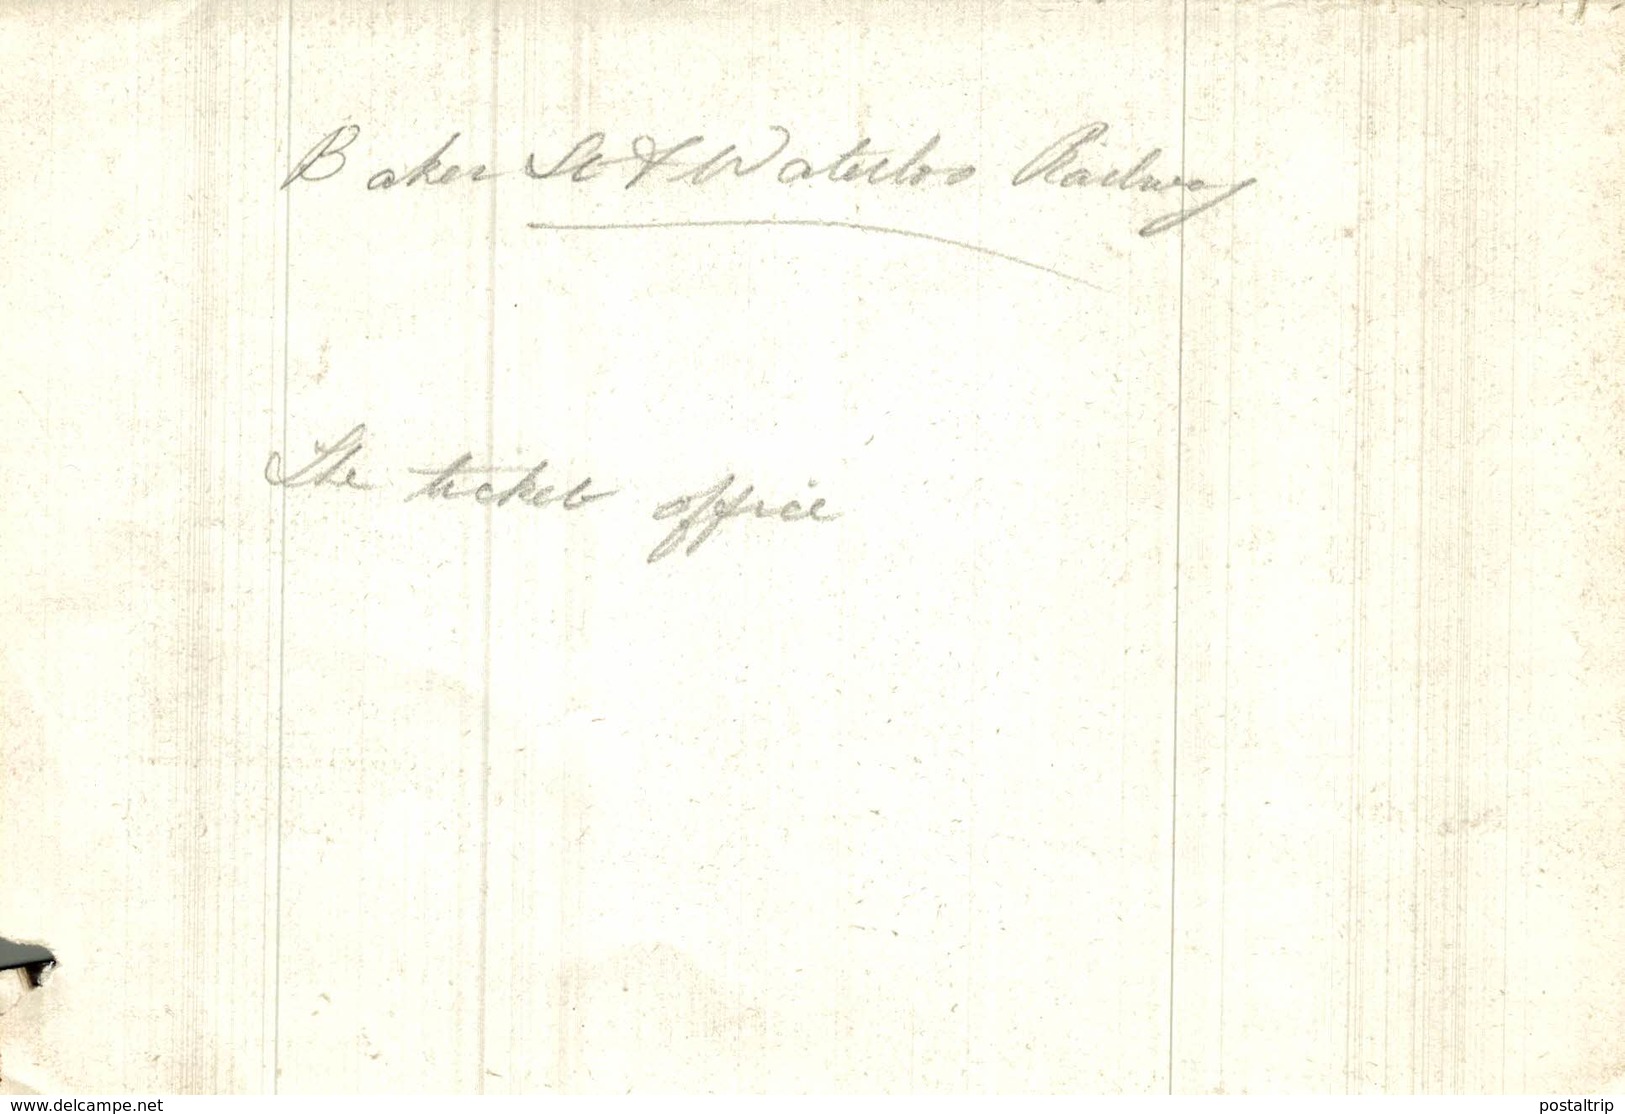 Baker St & Waterloo Railway
The ticket office
www.delcampe.net
postaltrip